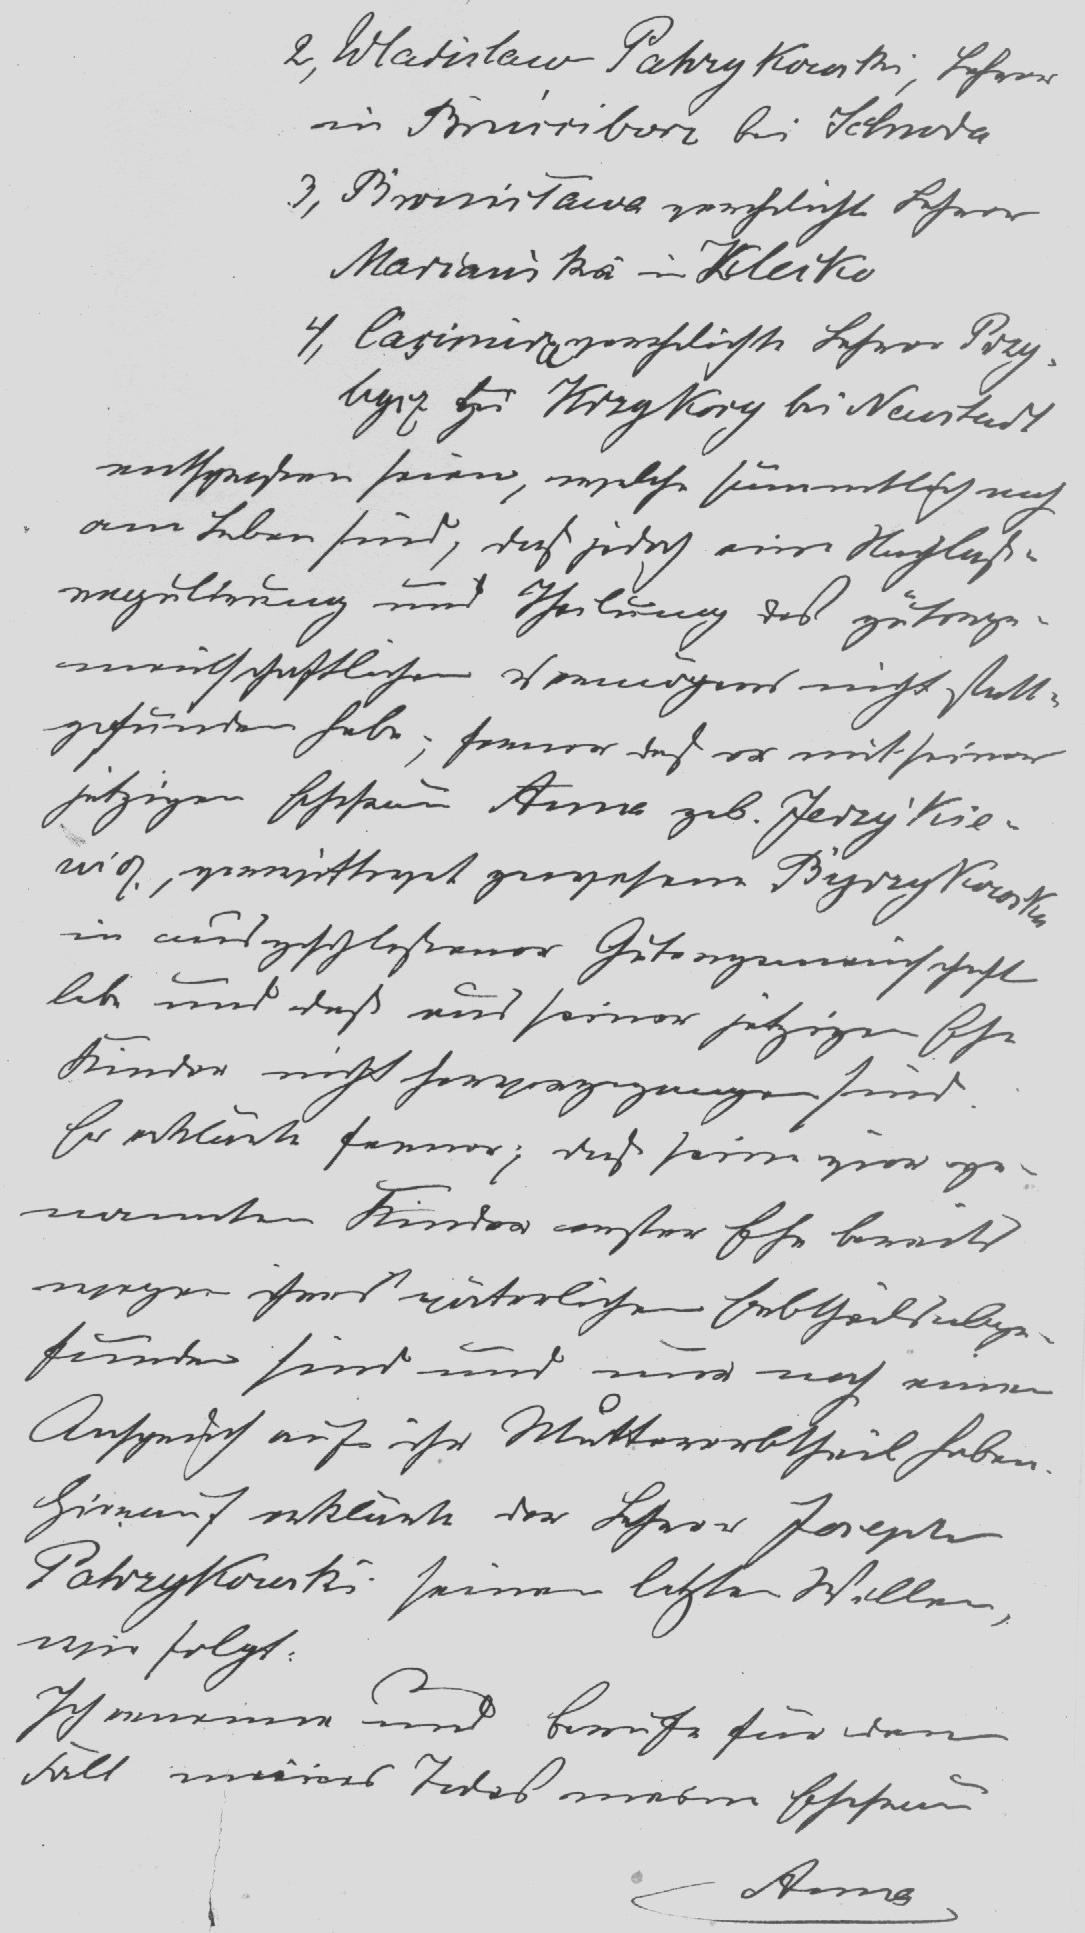 2, Wladislaw Patrzykowski, Lehrer
in Brusciborz bei Schroda
3, Bronisława verehelichte Lehrer
Mariańska in Kletzko
4, Casimira verehelichte Lehrer
bei Neustadt
entsprossen seien, welche sämmtlich noch
am Leben sind, daß jedoch eine Nachlaß-
regulirung und Theilung des güterge-
meinschaftlichen Vermögens nicht statt-
gefunden habe; ferner daß er mit seiner
jetzigen Ehefrau Anna geb. Jerzykie-
wicz, verwittwet gewesene
in ausgeschloßener Gütergemeinschaft
lebe und daß aus seiner jetzigen Ehe
Kinder nicht hervorgegangen sind.
Er erklärte ferner; daß seine vier ge-
nannten Kinder erster Ehe bereits
wegen ihres väterlichen Erbtheils abge-
funden sind und nur noch einen
Anspruch auf ihr Muttererbtheil haben.
Hierauf erklärte der Lehrer Joseph
Patrzykowski seinen letzten Willen,
wie folgt:
Ich ernenne und berufe für den
Fall meines Todes meine Ehefrau
Anna